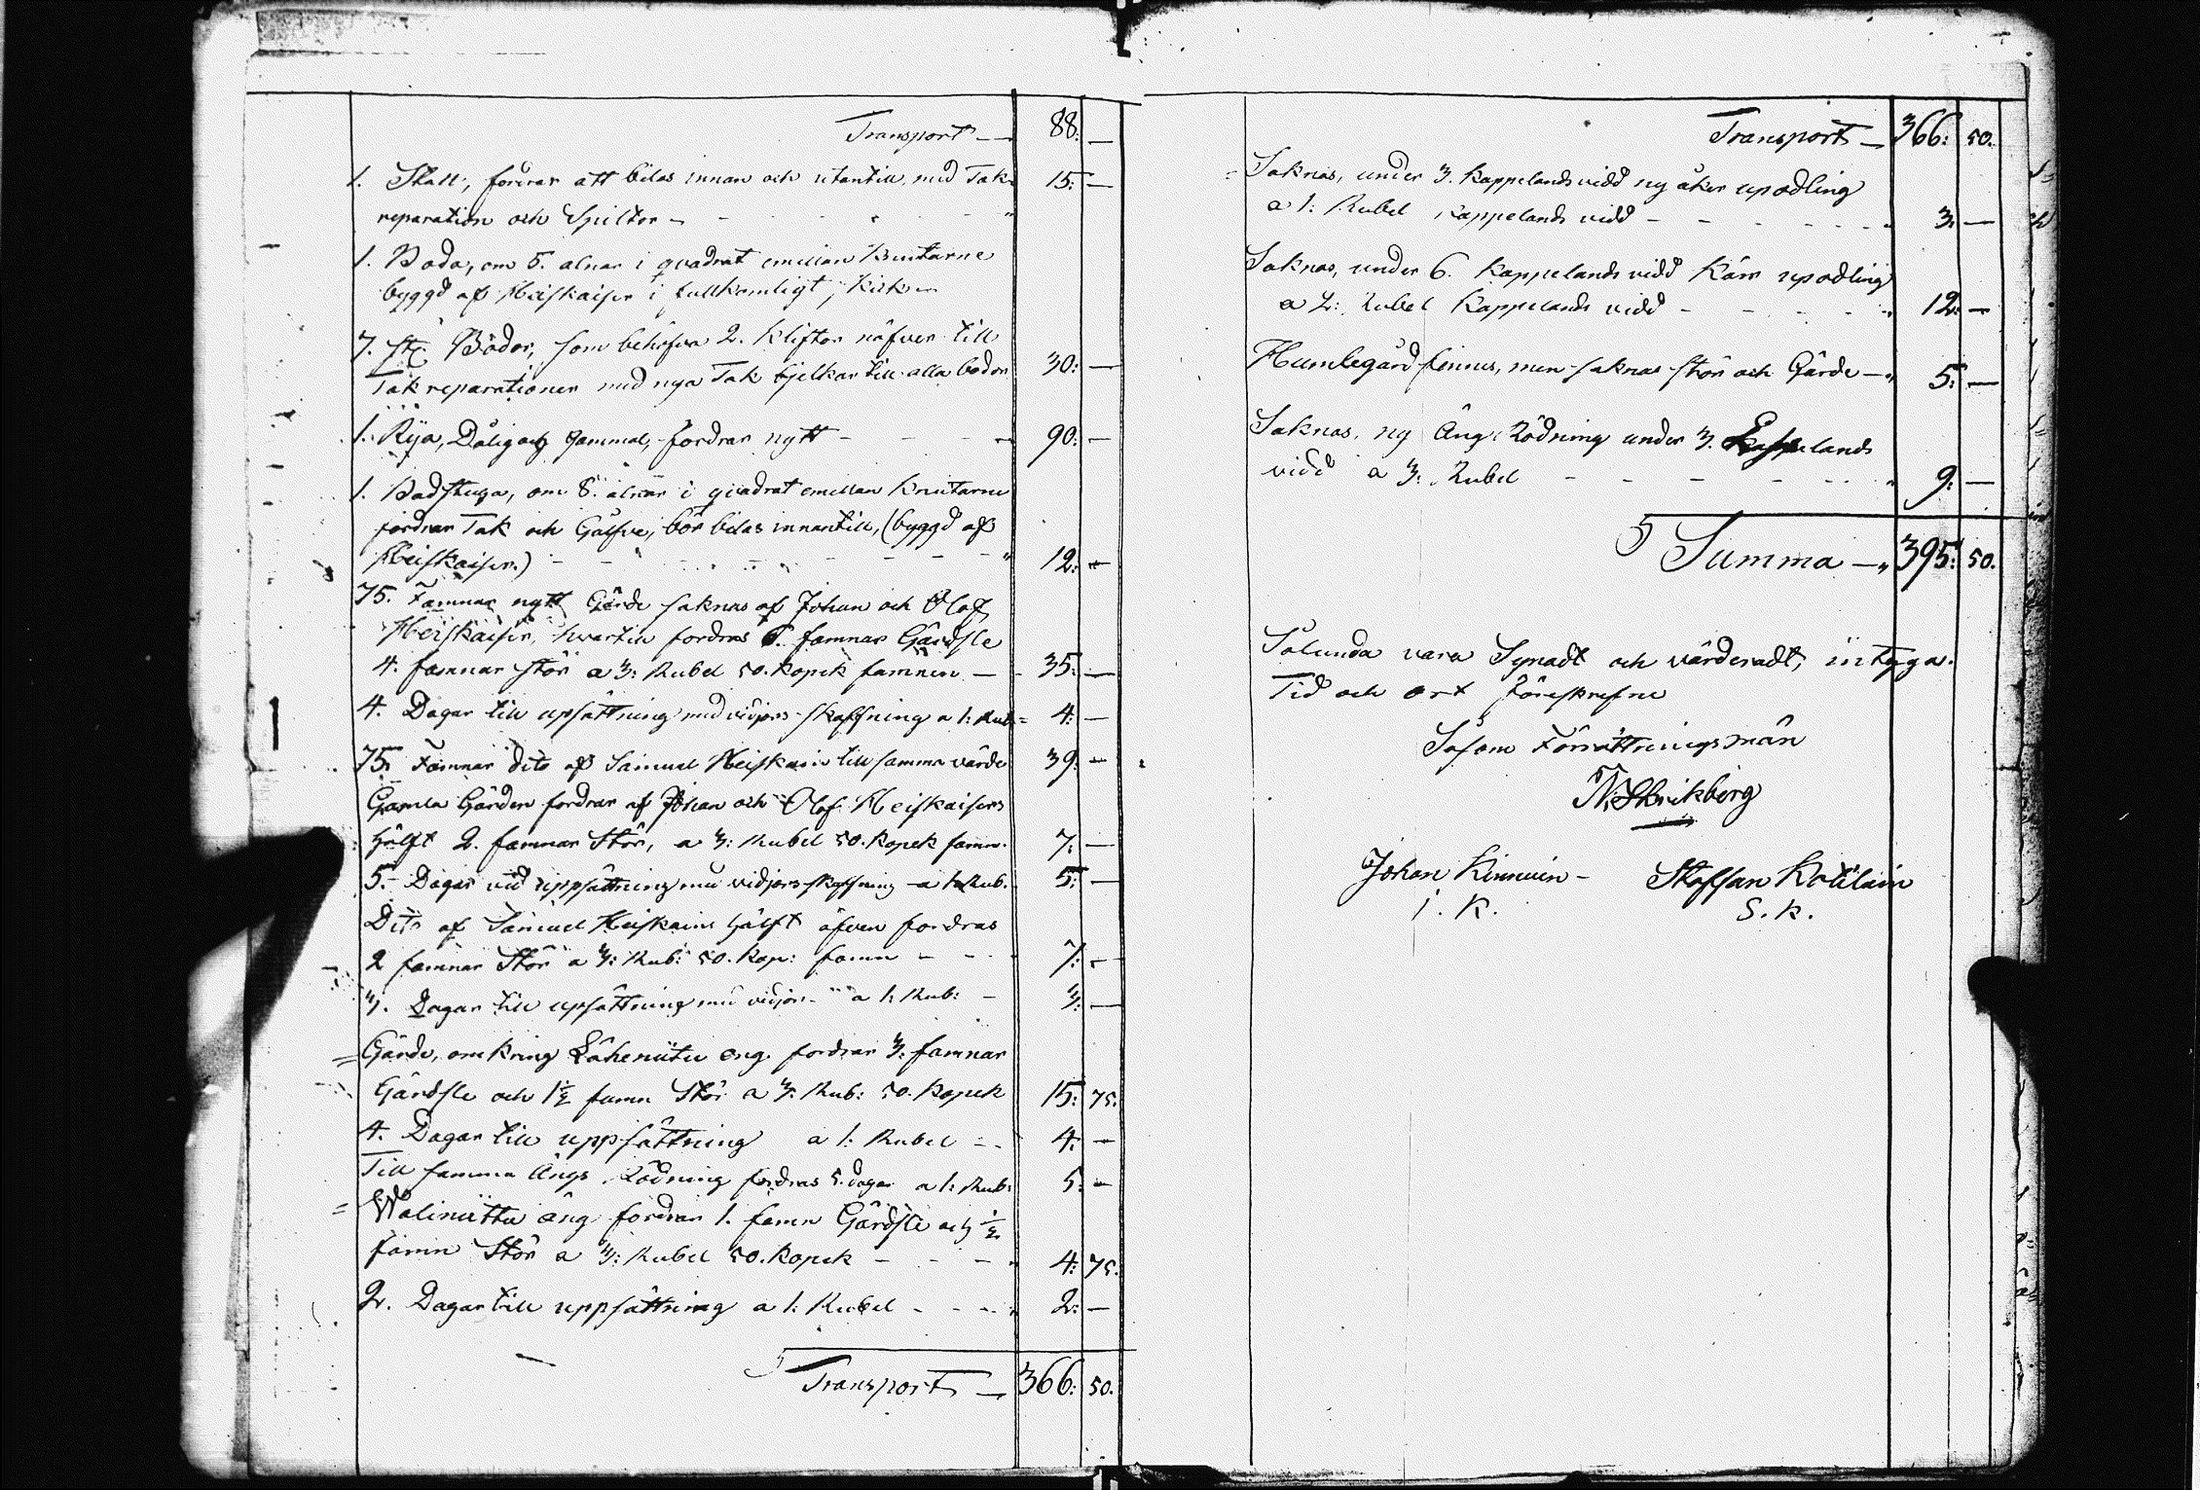 Transport — 88: —
1. Stall, fordrar att bilas innan och utantill, med Tak-
reparation och Spiltor - 15: —
1. Boda, om 5. alnar i qvadrat emillan knutarne
byggd af Heiskaiser i fullkomligt skick
7. st: Bodor, som behöfva 2. Kliftor näfver till
Tak reparationer med nya Tak bjelkar till alla bodor 30: —
1. Rija, Dålig och gammal, fordrar nytt - - 90: —
1. Badstuga, om 8. alnar i qvadrat emellan Knutarne
fordrar Tak och Gålfve, bör bilas innantill, (byggd af
Heiskaiser.) - - 12: —
75. Famnar nytt Gärde saknas af Johan och Olof
Heiskaiser, hvartill fordras 6. famnar Gärdsle
4. famnar stör a 3: Rubel 50. Kopek famnen — 35: —
4. Dagar till upsättning med vidjors skaffning a 1: Rub: 4: —
75. Famnar dito af Samuel Heiskain till samma värde 39: —
Gamla Gärden fordrar af Johan och Olof Heiskaisers
hälft 2. famnar Stör, a 3: Rubel 50. Kopek famn. 7: —
5. Dagar vid uppsättning med vidjors skaffning a 1: Rub. 5: —
Dito af Samuel Heiskains hälft äfven fordras
2 famnar Stör a 3: Rub: 50. Kop: famn - - 7: —
3. Dagar till upsättning med vidjor - a 1: Rub: - 3: —
= Gärde, omkring Läheniitu eng fordrar 3: famnar
Gärdsle och 1½ famn Stör a 3: Rub: 50. Kopek 15: 75.
4. Dagar till uppsättning a 1: Rubel - 4: —
Till samma Ängs Rödning fordras 5. dagar a 1: Rub: 5: —
= Waliniittu äng fordrar 1. famn Gärdsle och ½
famn Stör a 3: Rubel 50. Kopek - - 4: 75.
2. Dagar till uppsättning a 1: Rubel - - 2: —
Transport — 366: 50.
Transport — 366: 50.
= Saknas, under 3. Kappelands vidd ny åker upodling
a 1: Rubel Kappelands vidd - - 3. —
Saknas, under 6. Kappelands vidd Kärr upodling
a 2: Rubel Kappelands vidd - - 12: —
Humlegård finnes, men saknas stör och Gärde — 5: —
Saknas, ny Äng Rödning under 3. Kappelands
vidd a 3: Rubel - - 9: —
Summa — 395: 50.
Sålunda vara Synadt och värderadt, intyga.
Tid och ort förefrefne
Såsom Förrättningsmän
Johan Kinnuin - Staffan Kotilain
i. K. S. k.